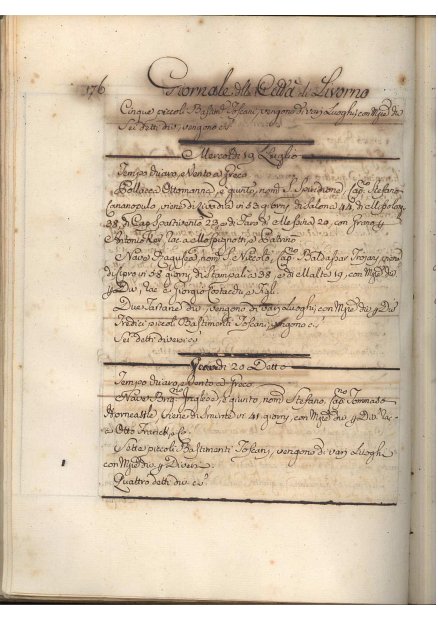 176 Giornale della Città di Livorno
Cinque piccoli Bastim.ti Toscani, vengono di varj Luoghi, con Mer.e div.
Sei detti div. vengono
Mercoldì 19 Luglio
Tempo Vario, e Vento a
Pollacca Ottomanna, è giunto, nom. S. Spiridione, Cap. Stefano
viene di in 53 giorni, di Salona 44, di Napoli
38, di Cap. Spartivento 23, e di Faro di Messina 20, con Grano
Antonio
Nave Ragusea, nom. S. Niccolò, Cap. Baldassar viene
di in 58 giorni, di Stampalia 38, e di Malta 19, con Mer.e div.
p. Div. Rac. e Giorgio
Due Tartane div. vengono di varj Luoghi, con Mer.e div. p. Div.
Tredici piccoli Bastimenti Toscani, vengono
Sei detti diversi
Giovedì 20 Detto
Tempo Vario, e Vento a
Nave Inglese, è giunto, nom. Stefano, Cap.no Tommaso
Horncastle viene di Smirne in 41 giorni, con Mer.e div. p. Div. Rac.
a Otto Franck, e Co.
Sette piccoli Bastimenti Toscani, vengono di varj Luoghi
con Mer.e div. p. Diversi
Quattro detti div.